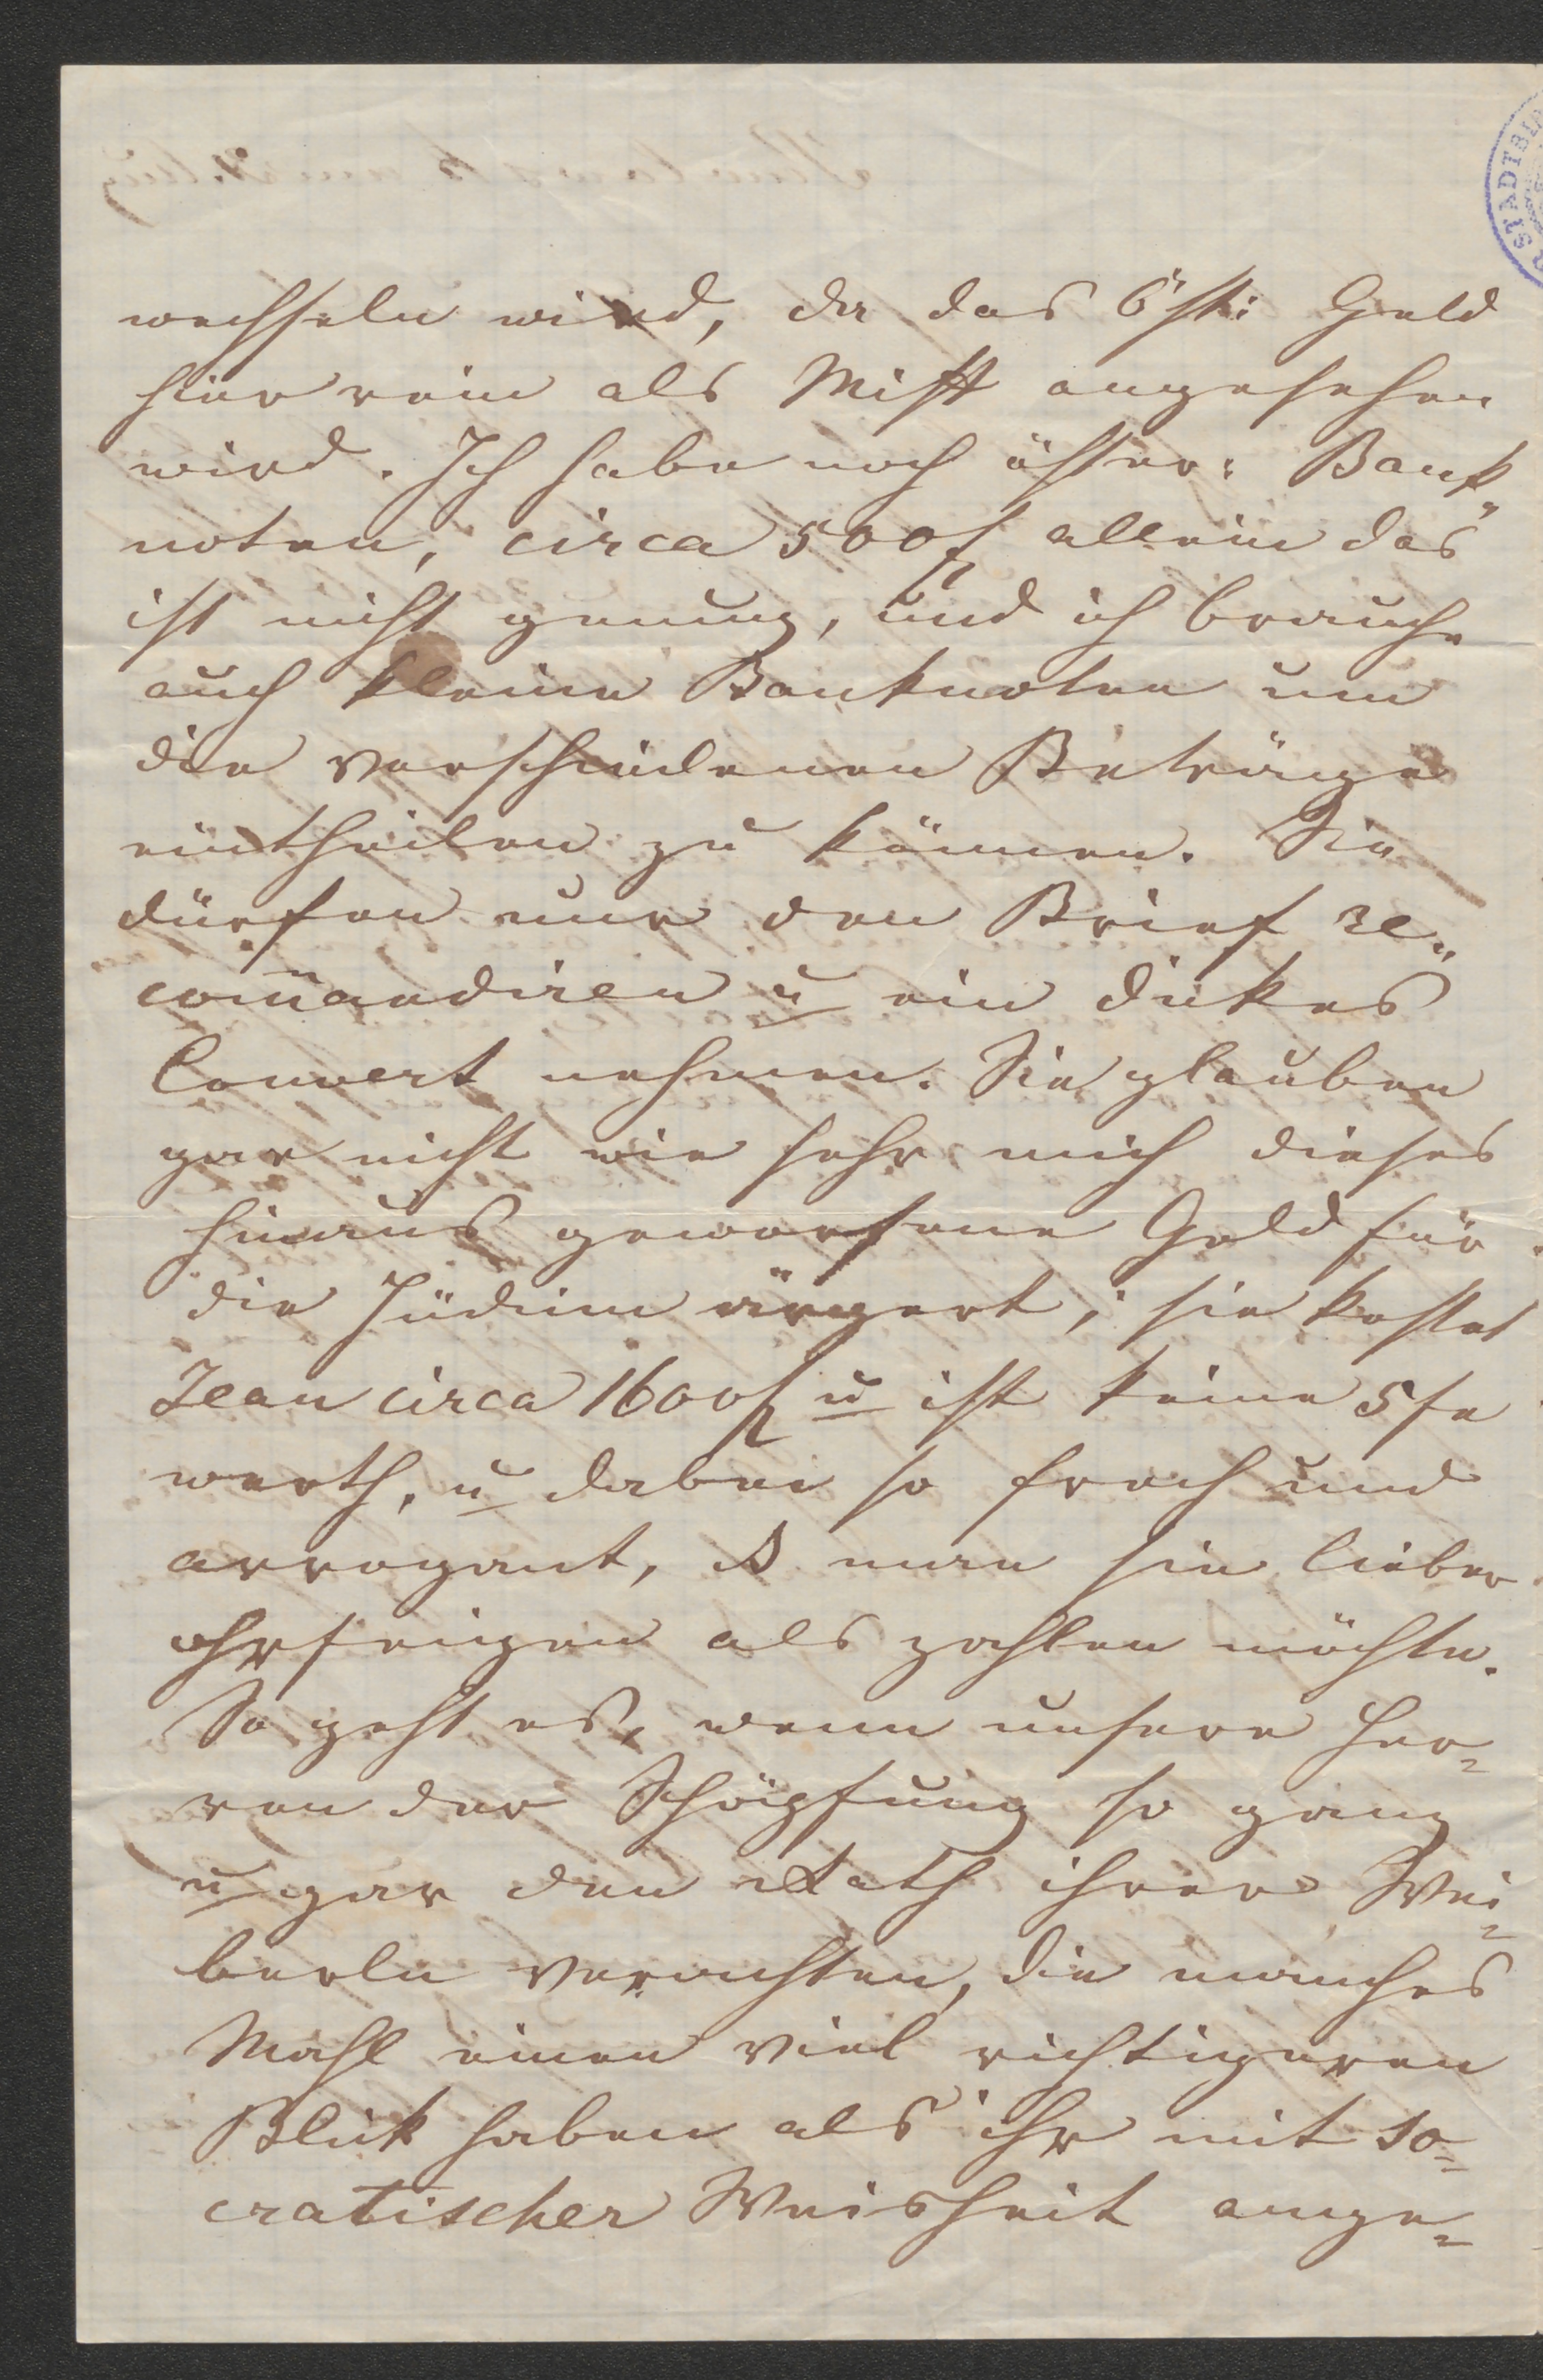 wechseln wird, da das östr: Geld
hier rein als Mist angesehen
wird. Ich habe noch öster: Bank„
noten, circa 500f allein das
ist nicht genung, und ich brauche
auch kleine Banknoten um
die verschiedenen Beträge
eintheilen zu können. Sie
dürfen nur den Brief re„
com̄andiren u ein dickes
Couvert nehmen. Sie glauben
gar nicht wie sehr mich dieses
hinaus geworfene Geld für
die Jüdinn ärgert, sie kostet
Jean circa 1600f u ist keine 5 fr
werth, u dabei so frech und
arrogant, dß man sie lieber
ohrfeigen als zahlen möchte.
So geht es, wenn unsere Her=
ren der Schöpfung so ganz
u gar den Rath ihrer Wei=
berln verachten, die manches
Mahl einen viel richtigeren
Blick haben als ihr mit so=
cratischer Weisheit ange=
STADTBI